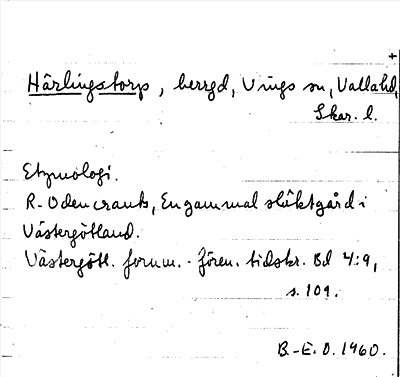 Härlingstorp, herrgd, Vings sn, Vallahd,
Skar. l.
Etymologi.
R. Odencrants, En gammal släktgård i
Västergötland.
Västergötl. fornm. - fören. tidskr. Bd 4:9,
s. 109.
B.-E. O. 1960.